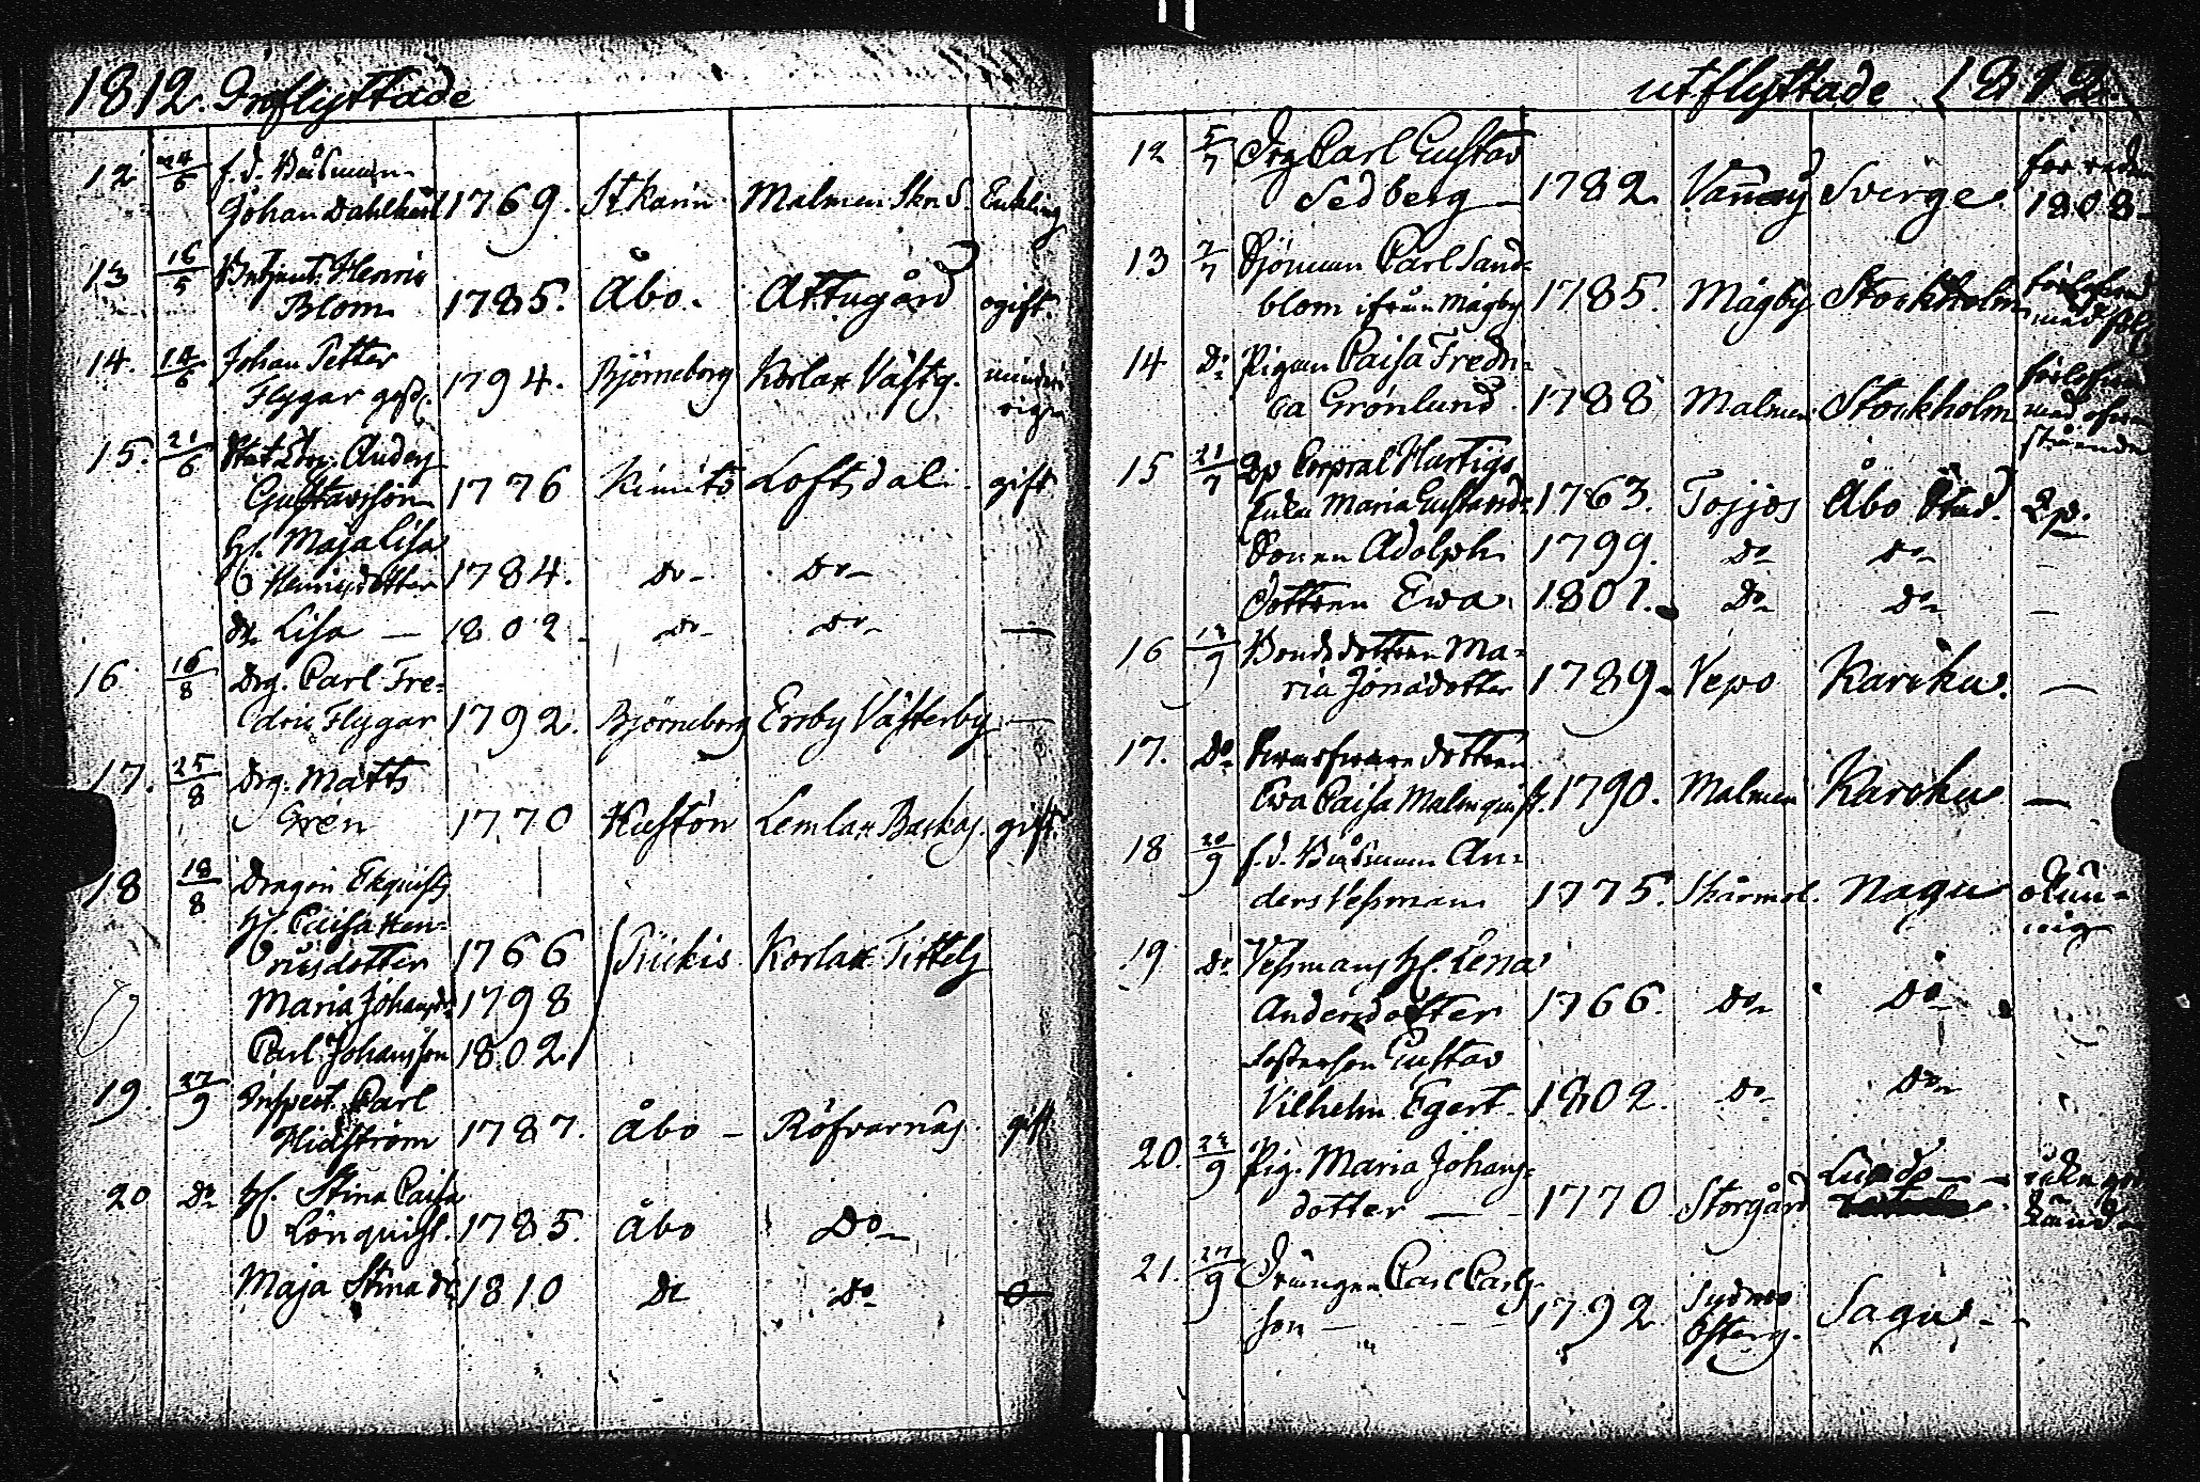 1812. Inflyttade
12 24/6 f.d. Båtsman
Johan Dahlkvist 1769. St Karin Malmen Skn S. Enkling
13 16/5 Betjent. Henric
Blom 1785. Åbo. Attugård ogift.
14. 14/6 Johan Petter
Flygar 1794. Björneborg Korlax Västg. minderigr
15. 21/6 Anders
Gustavsson 1776 Kimito Loftsdal gift
H. Maja Lisa
Henrisdotter 1784. Do Do
dr Lisa — 1802. Do Do —
16 16/8 Drg. Carl Fre=
dric Flygar 1792. Björneborg Ersby Västerby —
17. 25/8 Drg. Matts
Grén 1770 Kustön Lemlax Backas. gift.
18 18/8 Dragon Ekquists
H. Caisa Hen=
ricsdotter 1766 Piickis Korlax Tittels
Maria Johansdr. 1798
Carl Johansson 1802.
19. 27/9 Inspect. Carl
Hidström 1787. Åbo — Röfvarnäs. gift
20 Do H. Stina Caisa
Lönquist. 1785. Åbo Do
Maja Stina dr 1810 Do Do
utflyttade 1812
12 5/7 Drg Carl Gustav
Sedberg 1782. Sverige for redan
1808
13 7/7 Sjöman Carl Sand=
blom ifrån Mågby 1785. Mågby Stockholm
14 Do Pigan Caisa Fredri=
ca Grönlund. 1788 Malmen Stockholm med ofvan
stående
15 21/7 Corporal Hartigs
Enka Maria Gustavsd= 1763. Tojjos Åbo Stad.
Sonen Adolph 1799. Do Do —
Dottren Ewa. 1801. Do Do —
16 /9 Bondedottren Ma=
ria Jonsdotter 1789. Vepo Kariku. —
17. Do dottren
Ewa Caisa Malmquist. 1790. Malmen Karoku —
18 20/9 f.d. Båtsman An=
ders Vessman 1775. Skärmol. Nagu
19 Do Vessmans H. Lena
Andersdotter 1766. Do Do
Sosterson Gustav
Vilhelm Egert 1802. Do Do
20. /9 Pig. Maria Johans=
dotter — 1770 Storgård Lundo
21. 27/9 Drängen Carl Carls
son — 1792 Sydmo
Österg. Sagu